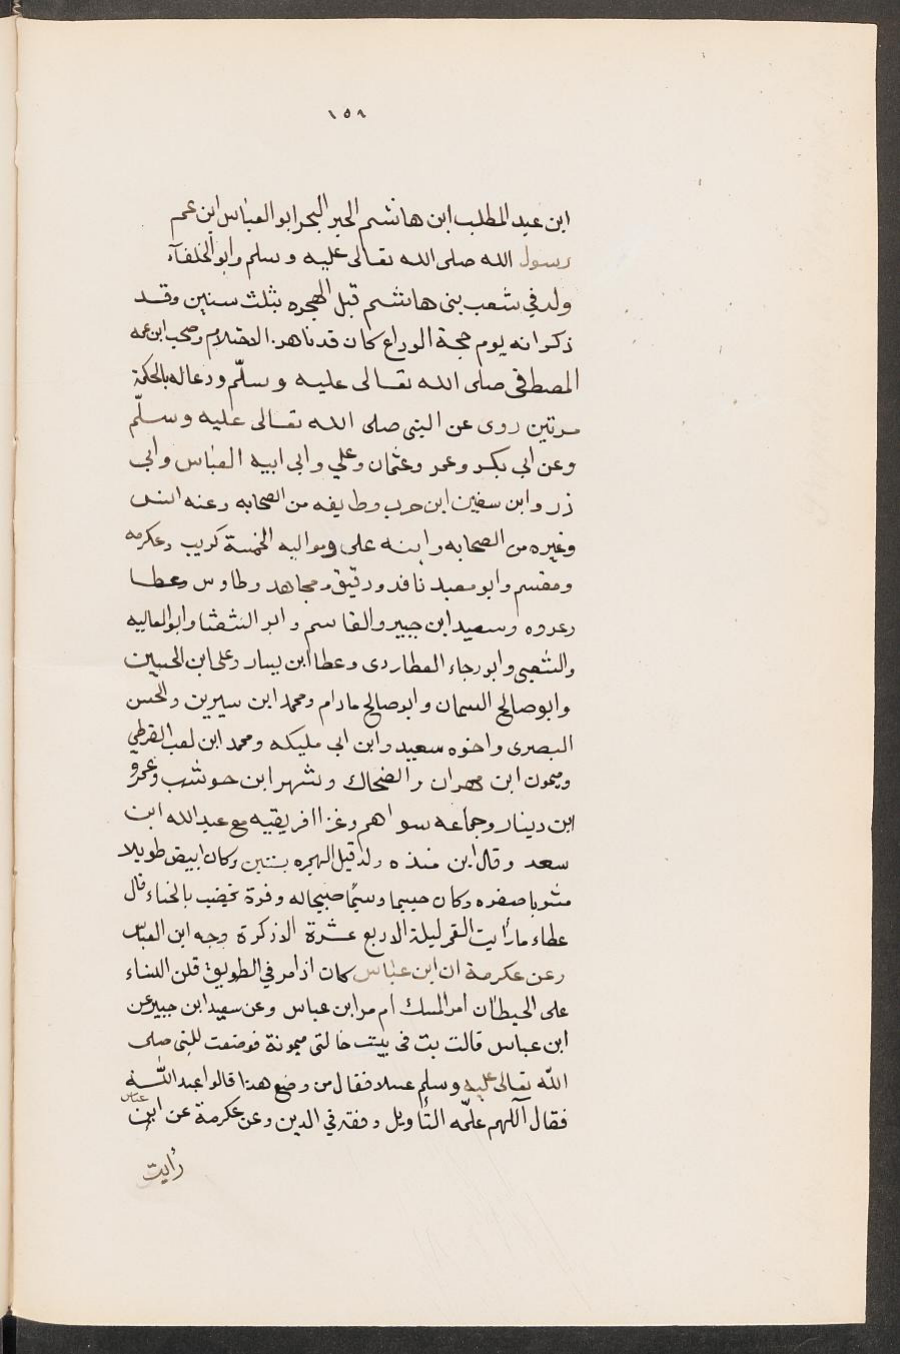 ١٥٨
ابن عبد المطلب ابن هاشم الحبر البحر ابو العباس ابن عم
رسول الله صلى الله تعالى عليه وسلم وابو الخلفآء
ولد في شعب بنى هاشم قبل الهجره بثلث سنين وقد
ذكر انه يوم حجة الوداع كان قد ناهز الاحتلام وصحب ابن عمه
المصطفى صلى الله تعالى عليه وسلّم ودعا له بالحكمة
مرتين روى عن النبى صلى الله تعالى عليه وسلّم
وعن ابي بكر وعمر وعثمان وعلي وابى ابيه العباس وابى
ذر وابن سفين ابن حرب وطايفه من الصحابه وعنه انس
وغيره من الصحابه وابنه على ومواليه الخمسة كريب وعكرمه
ومقسم وابو معبد نافد ورقيق ومجاهد وطاوس وعطا
وعروه وسعيد ابن جبير والقاسم وابو الشعثا وابو العاليه
والشعبى وابو رجاء العطاردى وعطا ابن يسار وعلى ابن الحسين
وابو صالح السمان وابو صالح مادام ومحمد ابن سيرين والحسن
البصرى واخوه سعيد وابن ابى مليكه ومحمد ابن لعب القرظي
وميمون ابن مهران والضحاك وشهر ابن حوشب وعمرو
ابن دينار وجماعه سواهم وغزا افريقيه مع عبد الله ابن
سعد وقال ابن منده ولد قبل الهجره بسنتين وكان ابيض طويلا
مشوبا صفره وكان جسيما وسيمًا صبيحا له وفرة يخضب بالحناء قال
عطاء ما رأيت القمر ليلة الاربع عشرة الا ذكرة وجه ابن العباس
وعن عكرمة ان ابن عباس كان اذا مر في الطريق قلن النساء
على الحيطان امر المسك ام مر ابن عباس وعن سعيد ابن جبير عن
ابن عباس قالت بت فى بيت خالتى ميمونة فوضعت للنبى صلى
اللّه تعالى عليه وسلم غسلا فقال من وضع هذا قالوا عبد اللّه
فقال آللهم علّمه التأويل وفقه في الدين وعن عكرمة عن ابن عباس
رأيت